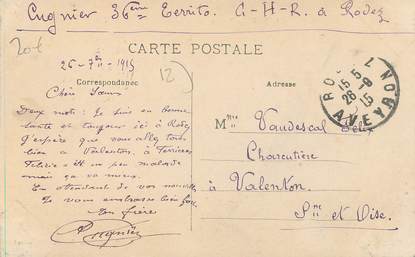 Cugnier 36ème Territo. A-H-R. à Rodez
20f
CARTE POSTALE
26-7bre-1915
12
Correspondance
Adresse
Chère Sœur
Deux mots : Je suis en bonne
santé et toujours ici à Rodez
J'espère que vous allez tous
bien à Valenton, à Ferrières
Félicie est un peu malade
mais ça va mieux.
En attendant de vos nouvelles
Je vous embrasse bien fort
Ton frère
Cugnier
Mme Vaudescal
Charcutière
à Valenton.
Sne et Oise.
RODEZ
15 5
26-9
15
AVEYRON